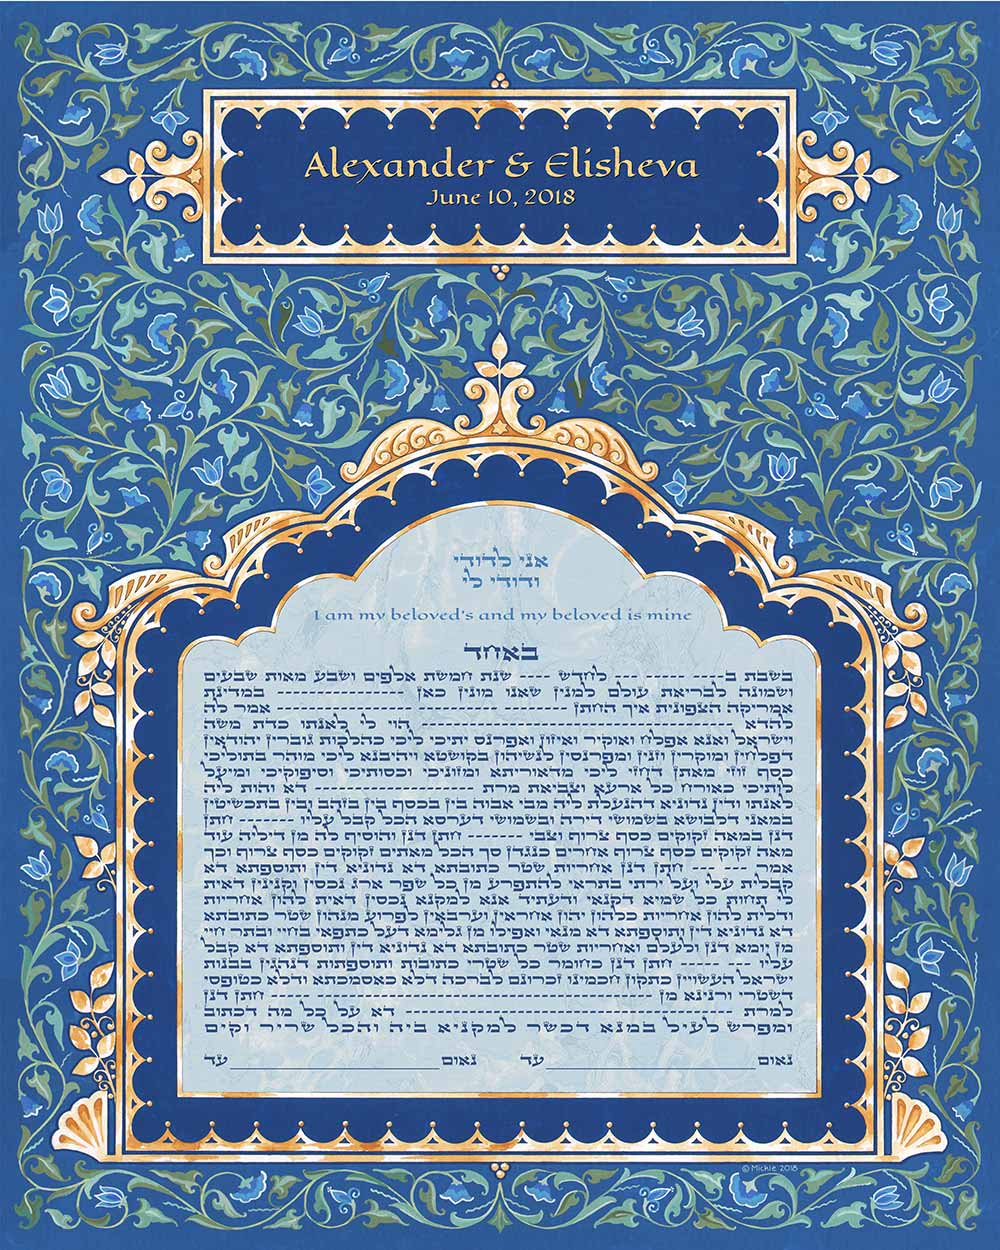 Alexander & Elisheva
June 10, 2018
אני לדודי
ודודי לי
I am my beloved's and my beloved is mine
באחד
בשבת ב---- ---- לחדש ---- שנת חמשת אלפים ושבע מאות שבעים
ושמונה לבריאת עולם למנין שאנו מונין כאן ---------------- במדינת
אמריקה הצפונית איך החתן -------------------------------- אמר לה
להדא -------------------------------- הוי לי לאנתו כדת משה
וישראל ואנא אפלח ואוקיר ואיזון ואפרנס יתיכי ליכי כהלכות גוברין יהודאין
דפלחין ומוקרין וזנין ומפרנסין לנשיהון בקושטא ויהיבנא ליכי מוהר בתוליכי
כסף זוזי מאתן דחזי ליכי מדאוריתא ומזוניכי וכסותיכי וסיפוקיכי ומיעל
לותיכי כאורח כל ארעא וצביאת מרת ---------------- דא והות ליה
לאנתו ודין נדוניא דהנעלת ליה מבי אבוה בין בכסף בין בזהב ובין בתכשיטין
במאני דלבושא בשמושי דירה ובשמושי דערסא הכל קבל עליו ------ חתן
דנן במאה זקוקים כסף צרוף וצבי ------ חתן דנן והוסיף לה מן דיליה עוד
מאה זקוקים כסף צרוף אחרים כנגדן סך הכל מאתים זקוקים כסף צרוף וכך
אמר ------ חתן דנן אחריות שטר כתובתא דא נדוניא דין ותוספתא דא
קבלית עלי ועל ירתי בתראי להתפרע מן כל שפר ארג נכסין וקנינין דאית
לי תחות כל שמיא דקנאי ודעתיד אנא למקנא נכסין דאית להון אחריות
ודלית להון אחריות כלהון יהון אחראין וערבאין לפרוע מנהון שטר כתובתא
דא נדוניא דין ותוספתא דא מנאי ואפילו מן גלימא דעל כתפאי בחיי ובתר חיי
מן יומא דנן ולעלם ואחריות שטר כתובתא דא נדוניא דין ותוספתא דא קבל
עליו ------ חתן דנן כחומר כל שטרי כתובות ותוספתות דנהגין בבנות
ישראל העשויין כתקון חכמינו זכרונם לברכה דלא כאסמכתא ודלא כטופסי
דשטרי וקנינא מן -------------------------------- חתן דנן
למרת -------------------------------- דא על כל מה דכתוב
ומפרש לעיל במנא דכשר למקניא ביה והכל שריר וקים
נאום ____________________ עד נאום ____________________ עד
© Mickie 2018